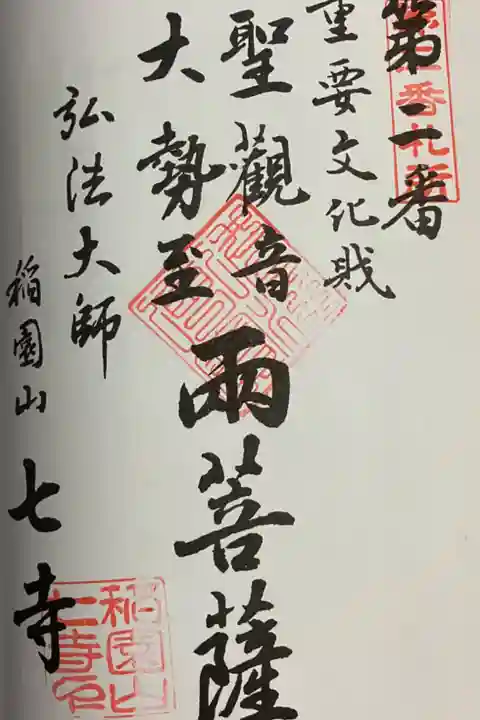 第二番
番札所
重要文化財
聖觀音
大勢至
兩菩薩
弘法大師
稲園山
七寺
稲園山
七寺